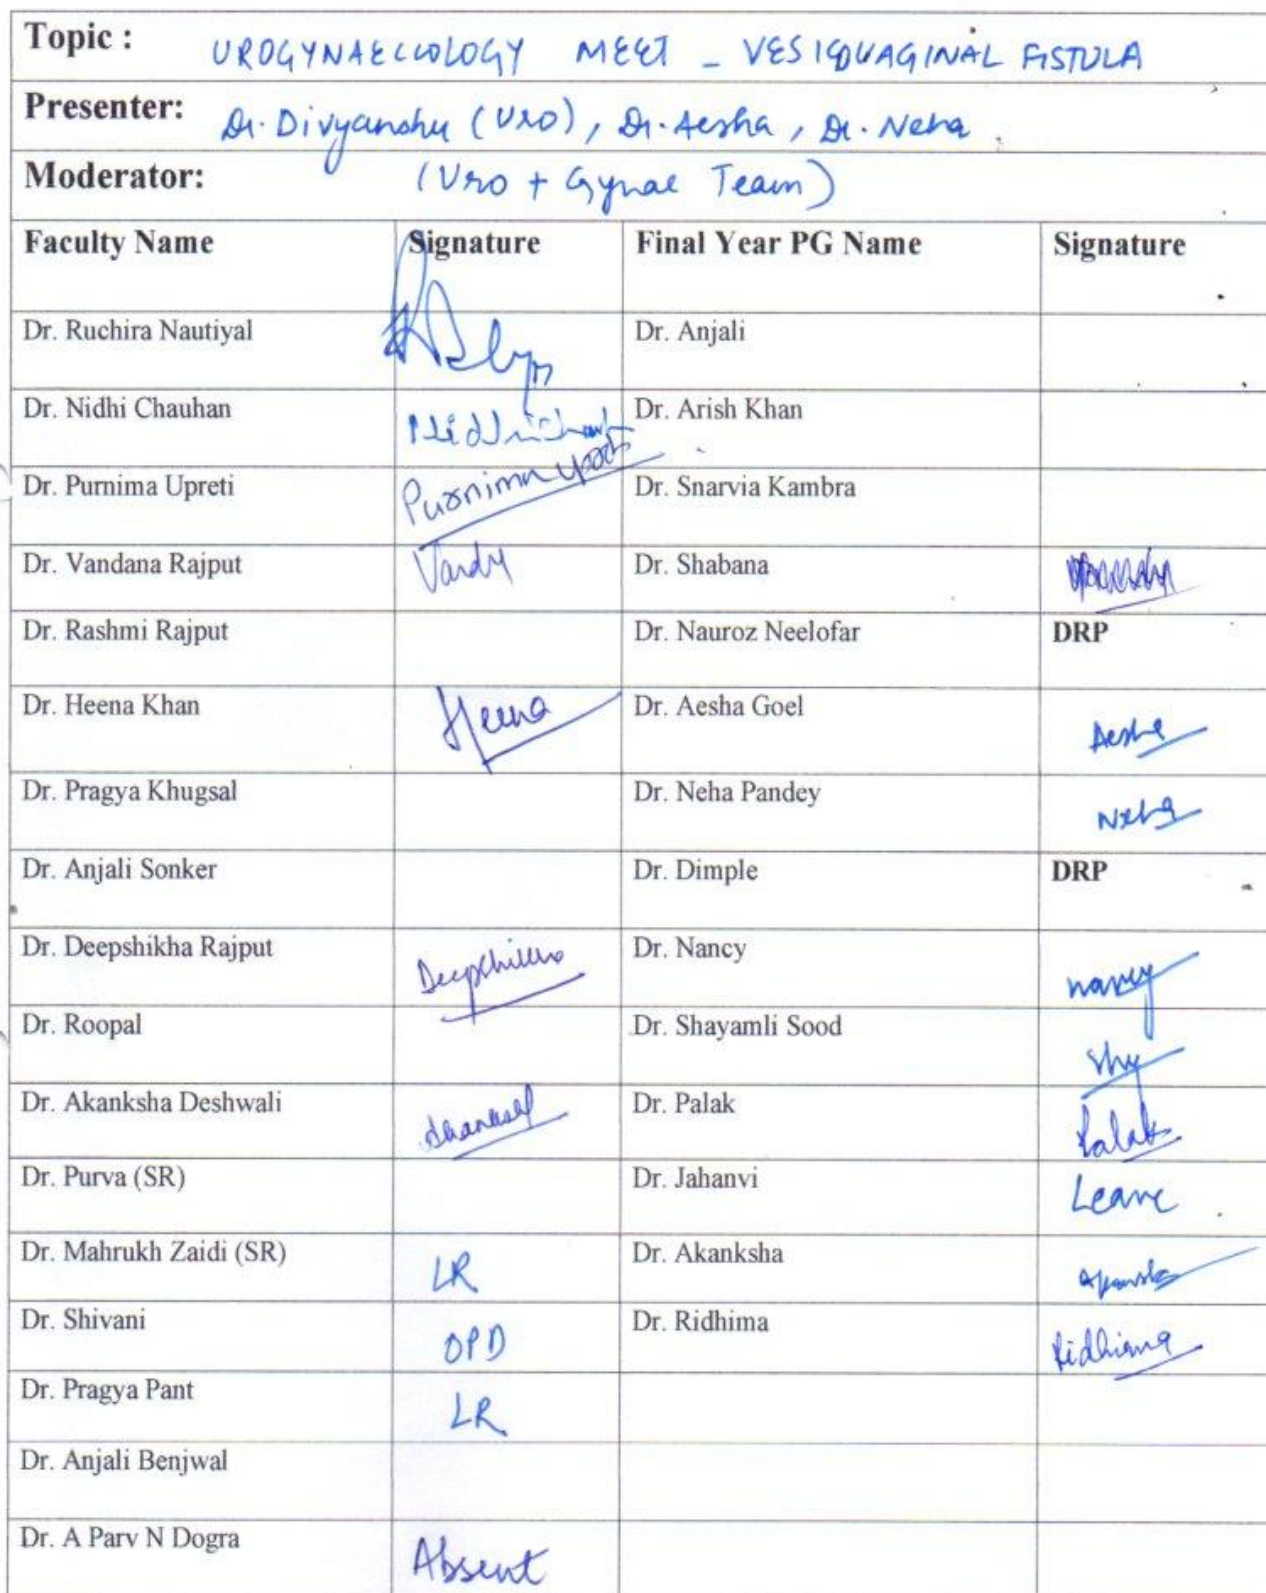 Topic : UROGYNAECCOLOGY MEET - VESICOVAGINAL FISTULA
Presenter: Dr. Divyanshu (Uro), Dr. Aesha, Dr. Neha
Moderator: (Uro + Gynae Team)
Faculty Name Signature Final Year PG Name Signature
Dr. Ruchira Nautiyal Dr. Anjali
Dr. Nidhi Chauhan Dr. Arish Khan
Dr. Purnima Upreti Purnima Dr. Snarvia Kambra
Dr. Vandana Rajput Dr. Shabana
Dr. Rashmi Rajput Dr. Nauroz Neelofar DRP
Dr. Heena Khan Heena Dr. Aesha Goel Aesha
Dr. Pragya Khugsal Dr. Neha Pandey Neha
Dr. Anjali Sonker Dr. Dimple DRP
Dr. Deepshikha Rajput Dr. Nancy nancy
Dr. Roopal Dr. Shayamli Sood
Dr. Akanksha Deshwali Dr. Palak Palak
Dr. Purva (SR) Dr. Jahanvi Leave
Dr. Mahrukh Zaidi (SR) LR Dr. Akanksha
Dr. Shivani OPD Dr. Ridhima Ridhima
Dr. Pragya Pant LR
Dr. Anjali Benjwal
Dr. A Parv N Dogra Absent